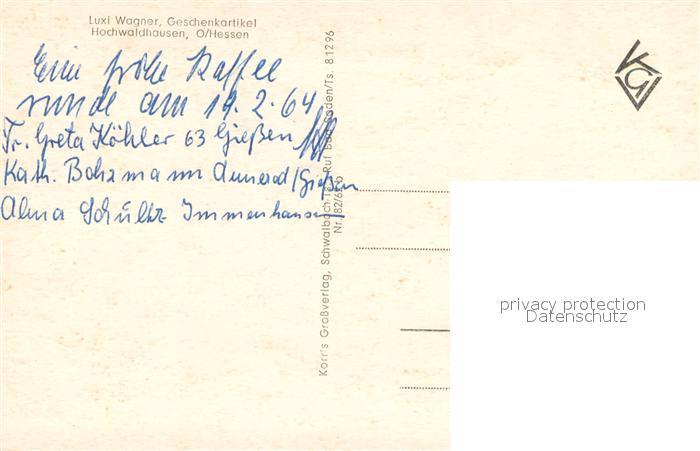 Luxi Wagner, Geschenkartikel
Hochwaldhausen, O/Hessen
Eine frohe Kaffee
runde am 19.2.64
Fr. Greta Köhler 63 Gießen
Kath. Bohrmann Annerod/Gießen
Alma Schultz Immenhausen
Korr's Großverlag, Schwalbach/Ts. Ruf Bad Soden/Ts. 81296
Nr. 82/65
KG
privacy protection
Datenschutz